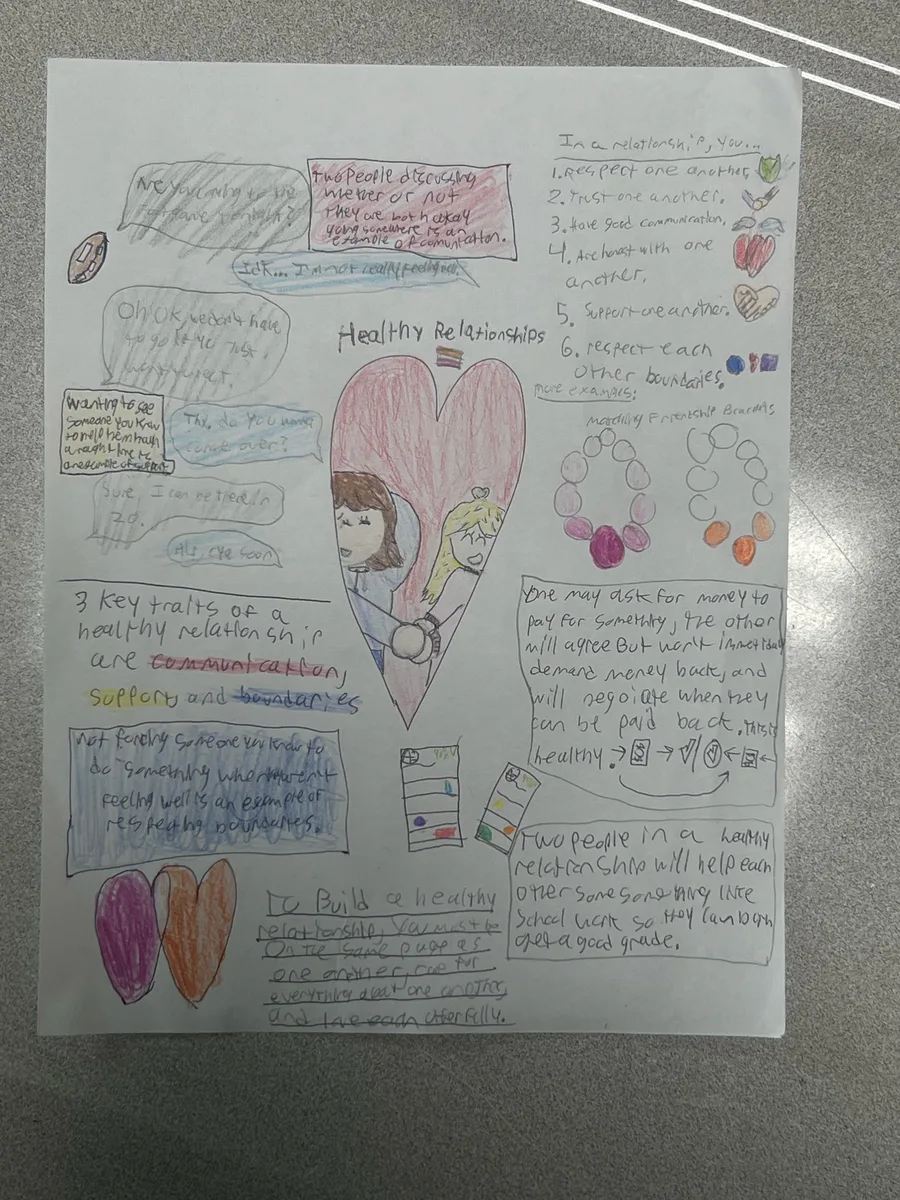 In a relationship, you...
1. Respect one another.
2. Trust one another.
3. Have good communication.
4. Are honest with one
another.
5. Support one another.
6. respect each
other boundaries.
Are you coming to the
tonight?
Two people discussing
wether or not
they are both okay
going somewhere is an
example of comunitation.
Idk... I'm not really feeling well.
Oh ok, we don't have
to go
Wanting to see
someone you know
to help them
is
an example of support
Thx, do you wanna
come over?
Sure, I can be there in
20.
soon
Healthy Relationships
more exampls:
Matching Friendship Bracelets
3 key traits of a
healthy relationship
are communication,
support and boundaries
not forcing someone you know to
do something when they aren't
feeling well is an example of
respecting boundaries.
One may ask for money to
pay for something, the other
will agree But won't
demand money back, and
will negoiate when they
can be paid back. this is
healthy.
Two people in a healthy
relationship will help each
other some something like
School work so they can both
get a good grade.
To Build a healthy
relationship, You must be
On the same page as
one another, care for
everything about one another,
and love each other fully.